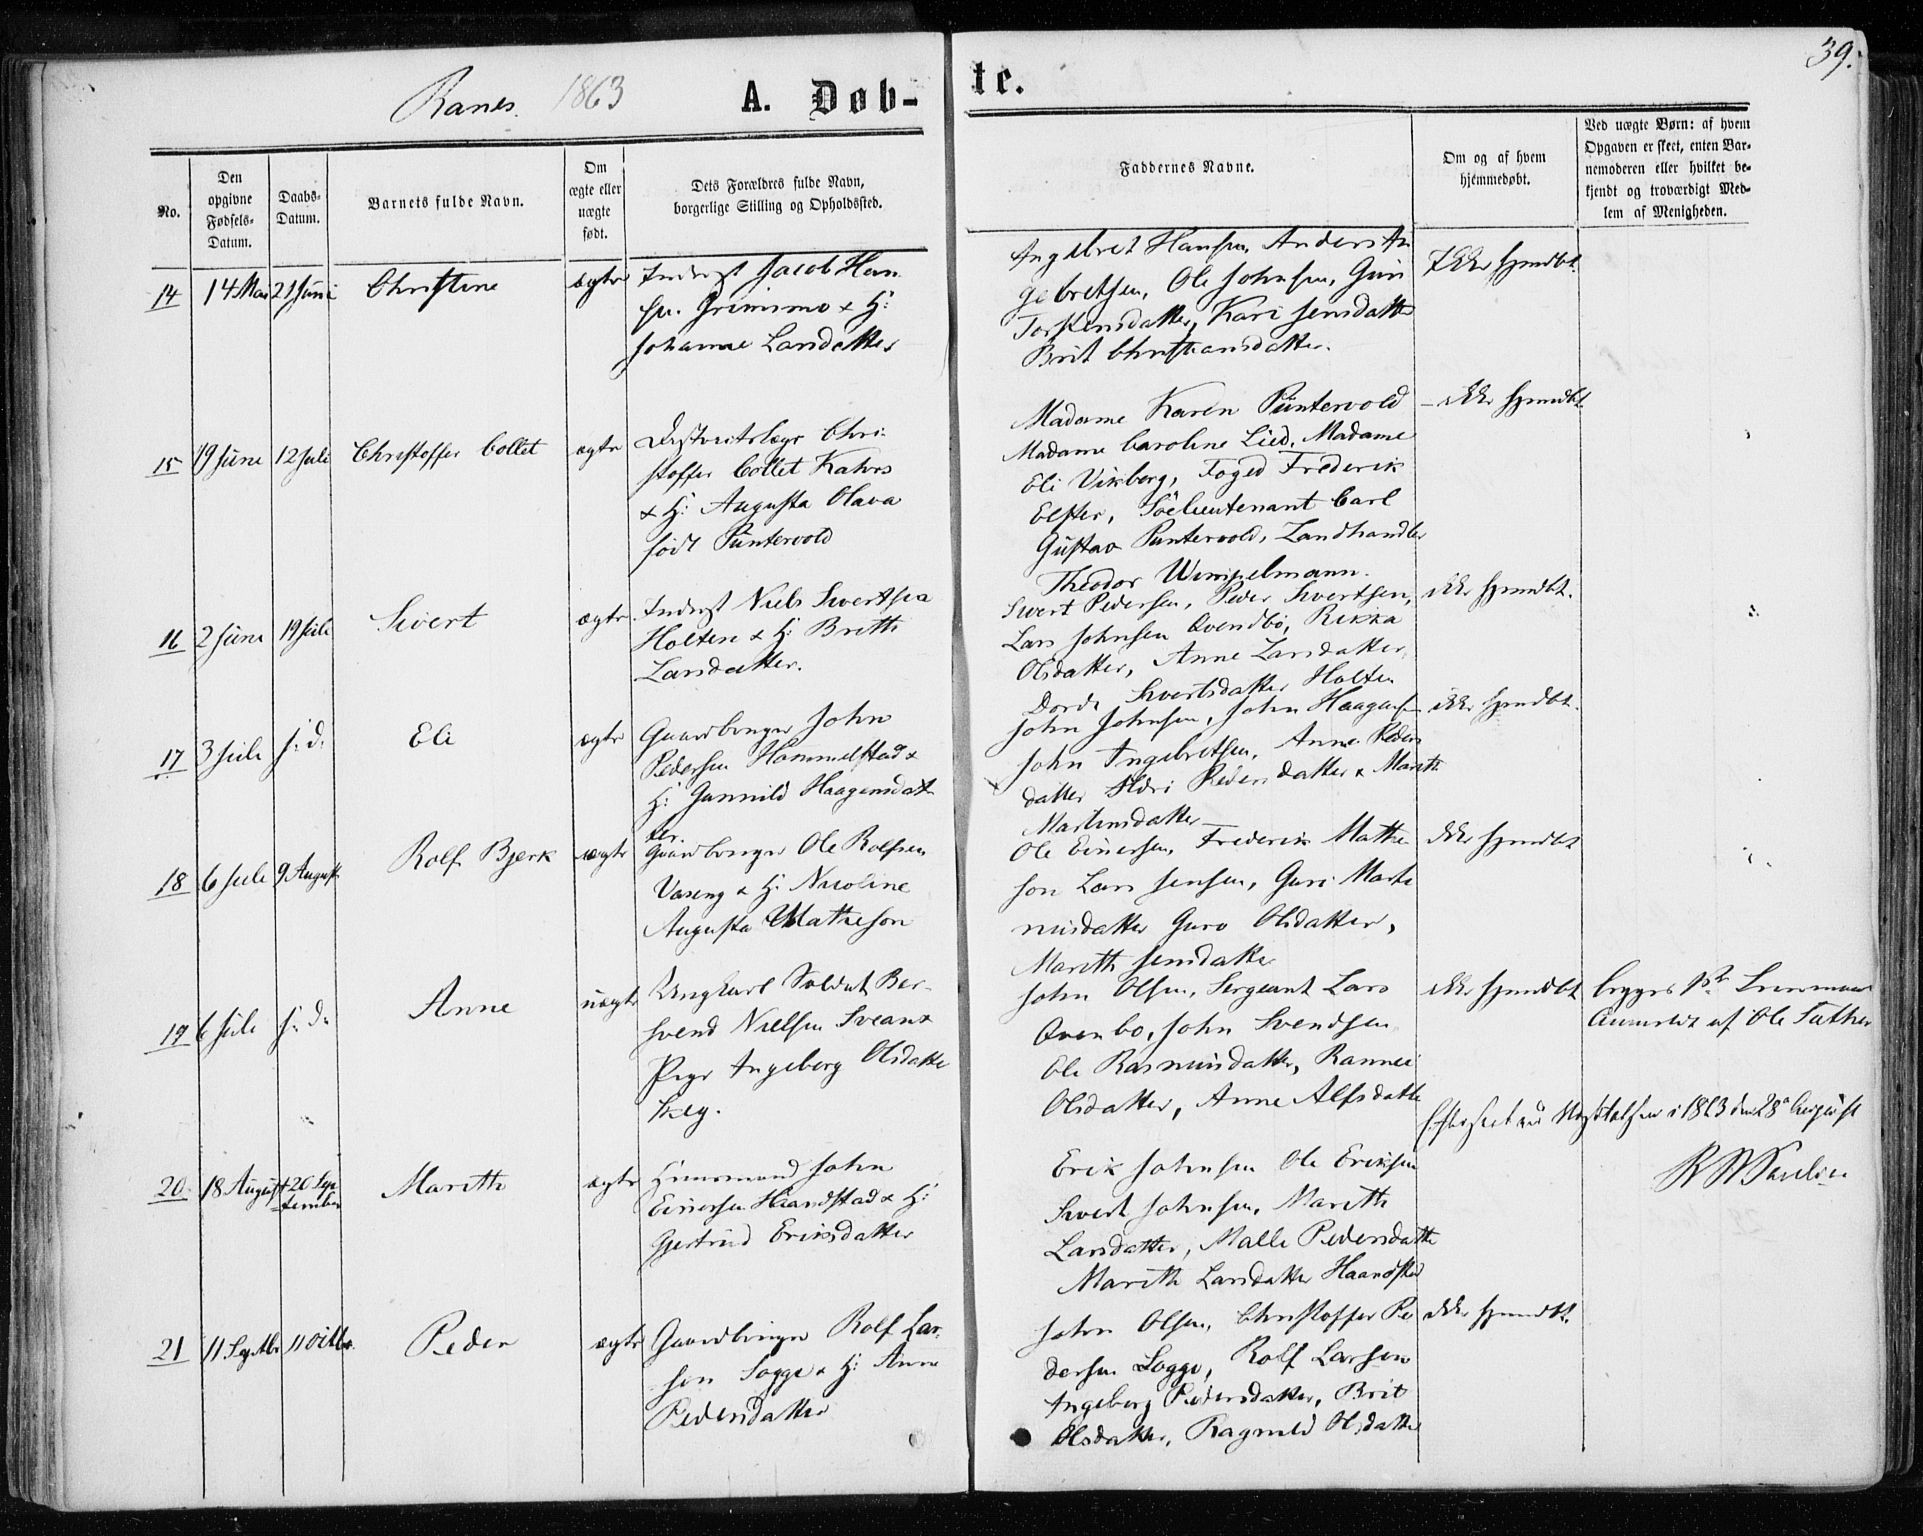 39.
Ranes. 1863
A. Døb-
te.
No.
Den
opgivne
Fødsels-
Datum.
Daabs-
Datum.
Barnets fulde Navn.
Om
ægte eller
uægte
født.
Dets Forældres fulde Navn,
borgerlige Stilling og Opholdssted.
Faddernes Navne.
Om og af hvem
hjemmedøbt.
Ved uægte Børn: af hvem
Opgaven er skeet, enten Bar-
nemoderen eller hvilket be-
kjendt og troværdigt Med-
lem af Menigheden.
14 14 Mai 21 Juni Christine ægte
Jacob Han
sen Grimsmo & H:
Johanne Larsdatter
Ingebret Hansen, Anders In
gebretsen, Ole Johnsen, Guri
Torstensdatter, Kari Jensdatter
Brit Christiansdatter.
Ikke hjmdbt.
15 19 June 12 Juli Christoffer Collet ægte
Distriktslæge Chri-
stoffer Collet Kahrs
& H: Augusta Olava
født Püntervold
Madame Karen Püntervold
Madame Caroline Lied, Madame
Eli Vikberg, Foged Frederik
Elster, Søelieutenant Carl
Gustav Puntervold, Landhandler
Theodor Wimpelmann.
ikke hjmdbt.
16 2 Juni 19 Juli Sivert ægte
Inderst Niels Sivertsen
Holten & H: Brith
Larsdatter.
Sivert Pedersen, Peder Sivertsen,
Lars Johnsen Qvendbø, Rekka
Olsdatter, Anne Larsdatter,
Dordi Sivertsdatter Holten
ikke hjmdbt.
17 3 Juli s: d: Eli ægte
Gaardbruger John
Pedersen Hammelstad &
H: Gunnild Haagensdat
ter.
John Johnsen, John Haagens
John Ingebretsen, Anne Peders
datter Peders datter & Marith
Martinsdatter
ikke hjmdbt.
18 6 Juli 9 August Rolf Bjerk ægte
Gaardbruger Ole Rolfsen
Vaseng & H: Nicoline
Augusta Matheson
Ole Einersen, Frederik Mathe
son Lars Jensen, Guri Marti
nusdatter Guro Olsdatter,
Marith Jensdatter
ikke hjmdbt
19 6 Juli s: d: Anne uægte
Ungkarl Soldat Ber-
svend Nielsen Svean &
Pige Ingeborg Olsdatter
Skey.
John Olsen, Sergeant Lars
Qvenbo, John Svendsen
Ole Rasmusdatter, Rannei
Olsdatter, Anne Alfsdatter
ikke hjmdbt
af Ole Sather
Efterseet ved i 1863 den 28 August
20. 18 August 20 Sep
tember Marith ægte
Huusmand John
Einersen Haandstad & H:
Gjertrud Eriksdatter
Erik Johnsen Ole Eriksen
Sivert Johnsen, Marith
Larsdatter, Malle Pedersdatter
Marith Larsdatter Haandstad
21 11 Septbr 11 Octbr. Peder ægte
Gaardbruger Rolf Lar-
sen Sogge & H: Anne
Pedersdatter
John Olsen, Christoffer Pe
dersen Sogge, Rolf Larsen
Ingeborg Pedersdatter, Brit
Olsdatter, Ragnild Olsdatter
ikke hjmdbt.